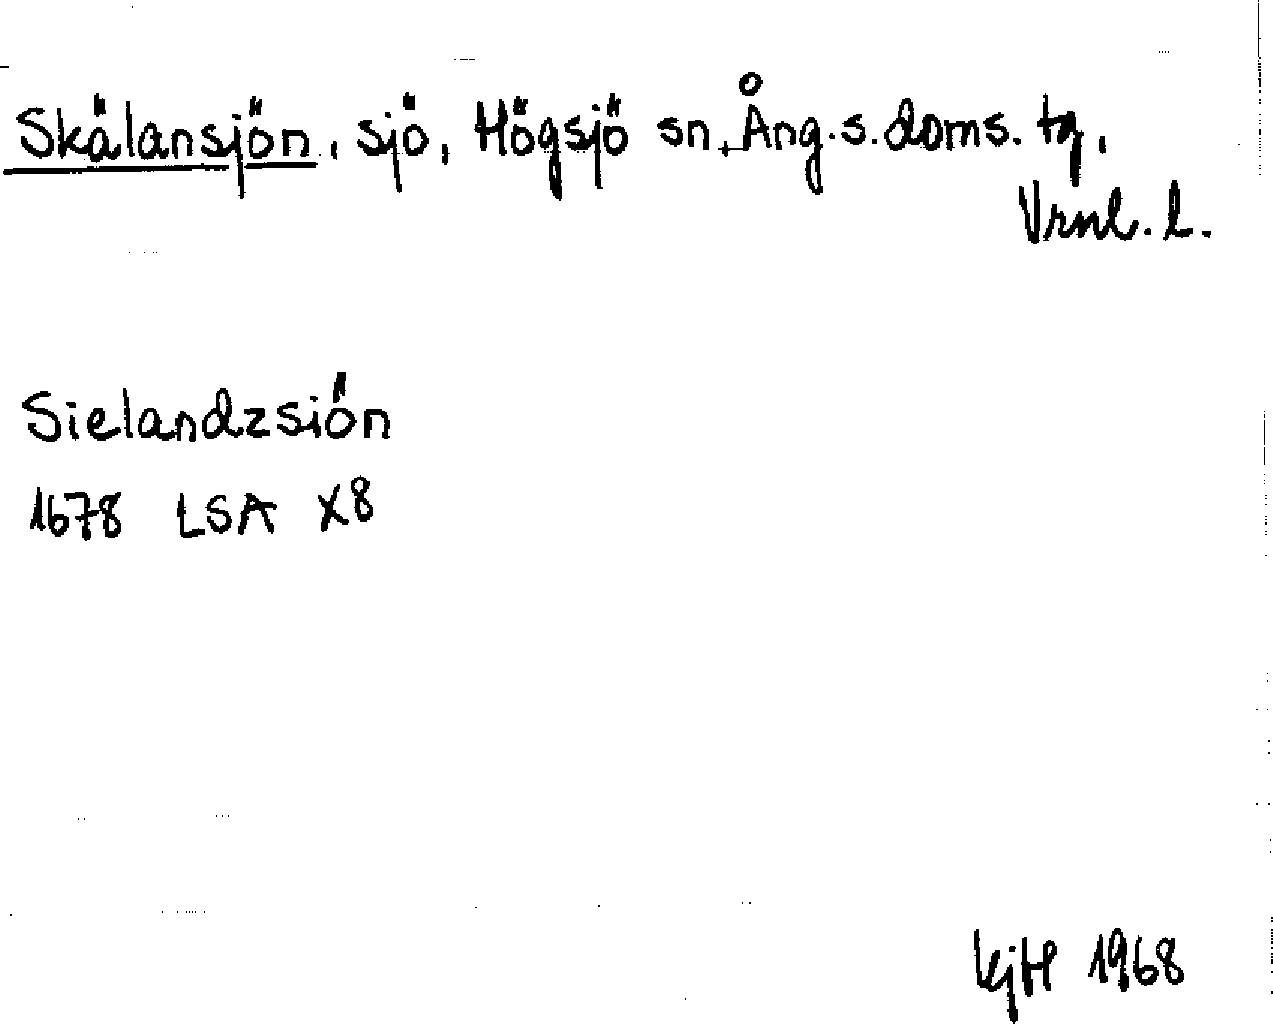 Skälansjön, sjö, Högsjö sn, Ång. s. doms. tg,
Vrnl. l.
Sielandzsiön
1678 LSA X8
KjtH 1968